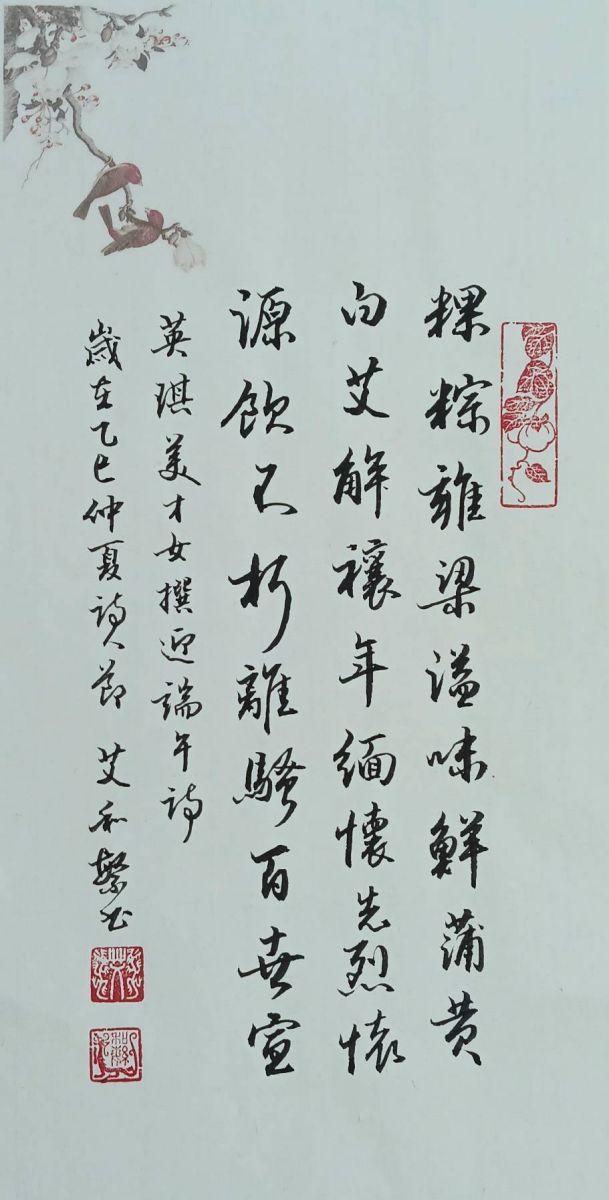 粿粽雜梁溢味鮮蒲黄
白艾解禳年緬懷先烈懷
源飲不朽離騷百世宣
英琪美才女撰迎端午詩
歲在乙巳仲夏詩人節 艾和繁书